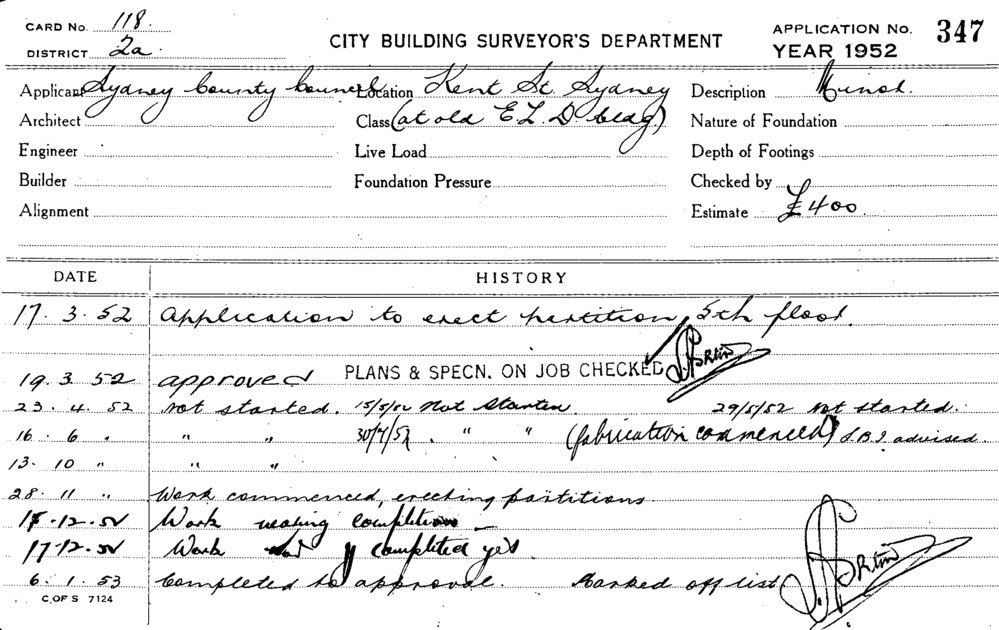 CARD No. 118.
DISTRICT 2a.
CITY BUILDING SURVEYOR'S DEPARTMENT
APPLICATION No. 347
YEAR 1952
Applicant Sydney County Council Location Kent St. Sydney Description Minor.
Architect Class (at old E.L.D. bldg) Nature of Foundation
Engineer Live Load Depth of Footings
Builder Foundation Pressure Checked by
Alignment Estimate £400.
DATE HISTORY
17. 3. 52 Application to erect partition, 5th floor.
19. 3. 52 approved PLANS & SPECN. ON JOB CHECKED
23. 4. 52 not started. 15/5/52 Not Started. 29/5/52 not started.
16. 6 " " " 30/7/52 . " " (fabrication commenced) advised.
13. 10 " " "
28. 11 " Work commenced, erecting partitions
15.12.52 Work nearing completion
17.12.52 Work not completed yet.
6. 1. 53 Completed to approval. Marked off list
C.OF S 7124